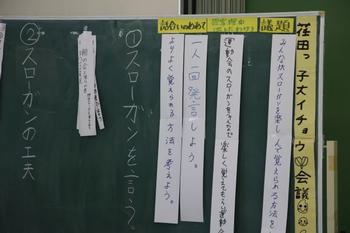 荏田っ子大イチョウ会議
議題
みんながスローガンを楽しんで覚えられる方法を
提案理由
運動会のスローガンをみんなで楽しく覚えて
話合いのめあて
一人一回発言しよう。
よりよく覚えられる方法を考えよう。
①スローガンを言う。
②スローガンの工夫